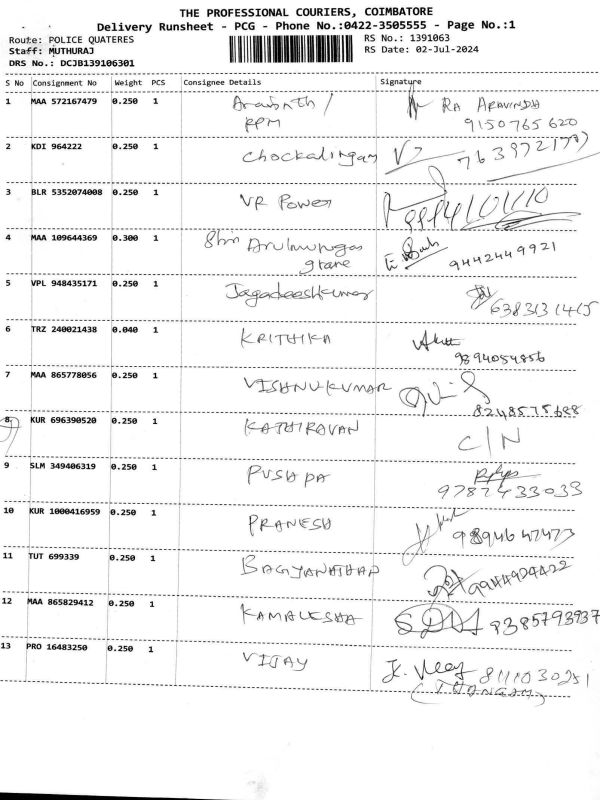 THE PROFESSIONAL COURIERS, COIMBATORE
Delivery Runsheet - PCG - Phone No.:0422-3505555 - Page No.:1
Route: POLICE QUATERES RS No.: 1391063
Staff: MUTHURAJ RS Date: 02-Jul-2024
DRS No.: DCJB139106301
S No Consignment No Weight PCS Consignee Details Signature
1 MAA 572167479 0.250 1 RA ARAVINDH
RPM 9150765620
2 KDI 964222 0.250 1 Chockalingam
3 BLR 5352074008 0.250 1 VR Power
4 MAA 109644369 0.300 1
9442449921
5 VPL 948435171 0.250 1 Jagadeeshkumar
6383131415
6 TRZ 240021438 0.040 1 KRITHIKA
9894054856
7 MAA 865778056 0.250 1 VISHNUKUMAR
8248575688
8 KUR 696390520 0.250 1 KATHIRAVAN C/N
9 SLM 349406319 0.250 1 PUSHPA
9787433033
10 KUR 1000416959 0.250 1 PRANESH 9894647473
11 TUT 699339 0.250 1
12 MAA 865829412 0.250 1 KAMALESHA 9385793937
13 PRO 16483250 0.250 1 VIJAY 8111030251